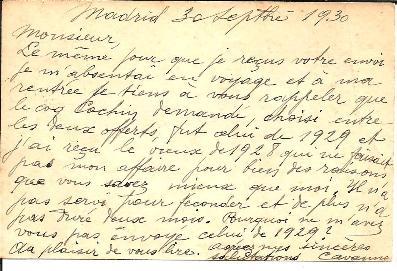 Madrid 30 Septbre 1930
Monsieur,
Le même jour que je reçus votre envoi
je m'absentai en voyage et à ma
rentrée je tiens à vous rappeler que
le coq Cochin demandé, choisi entre
les deux offerts, fut celui de 1929 et
j'ai reçu le vieux de 1928 qui ne faisait
pas mon affaire pour bien des raisons
que vous savez mieux que moi. Il n'a
pas servi pour féconder et de plus n'a
pas duré deux mois. Pourquoi ne m'avez
vous pas envoyé celui de 1929?
Au plaisir de vous lire. agréez mes sincères
salutations Cavanna